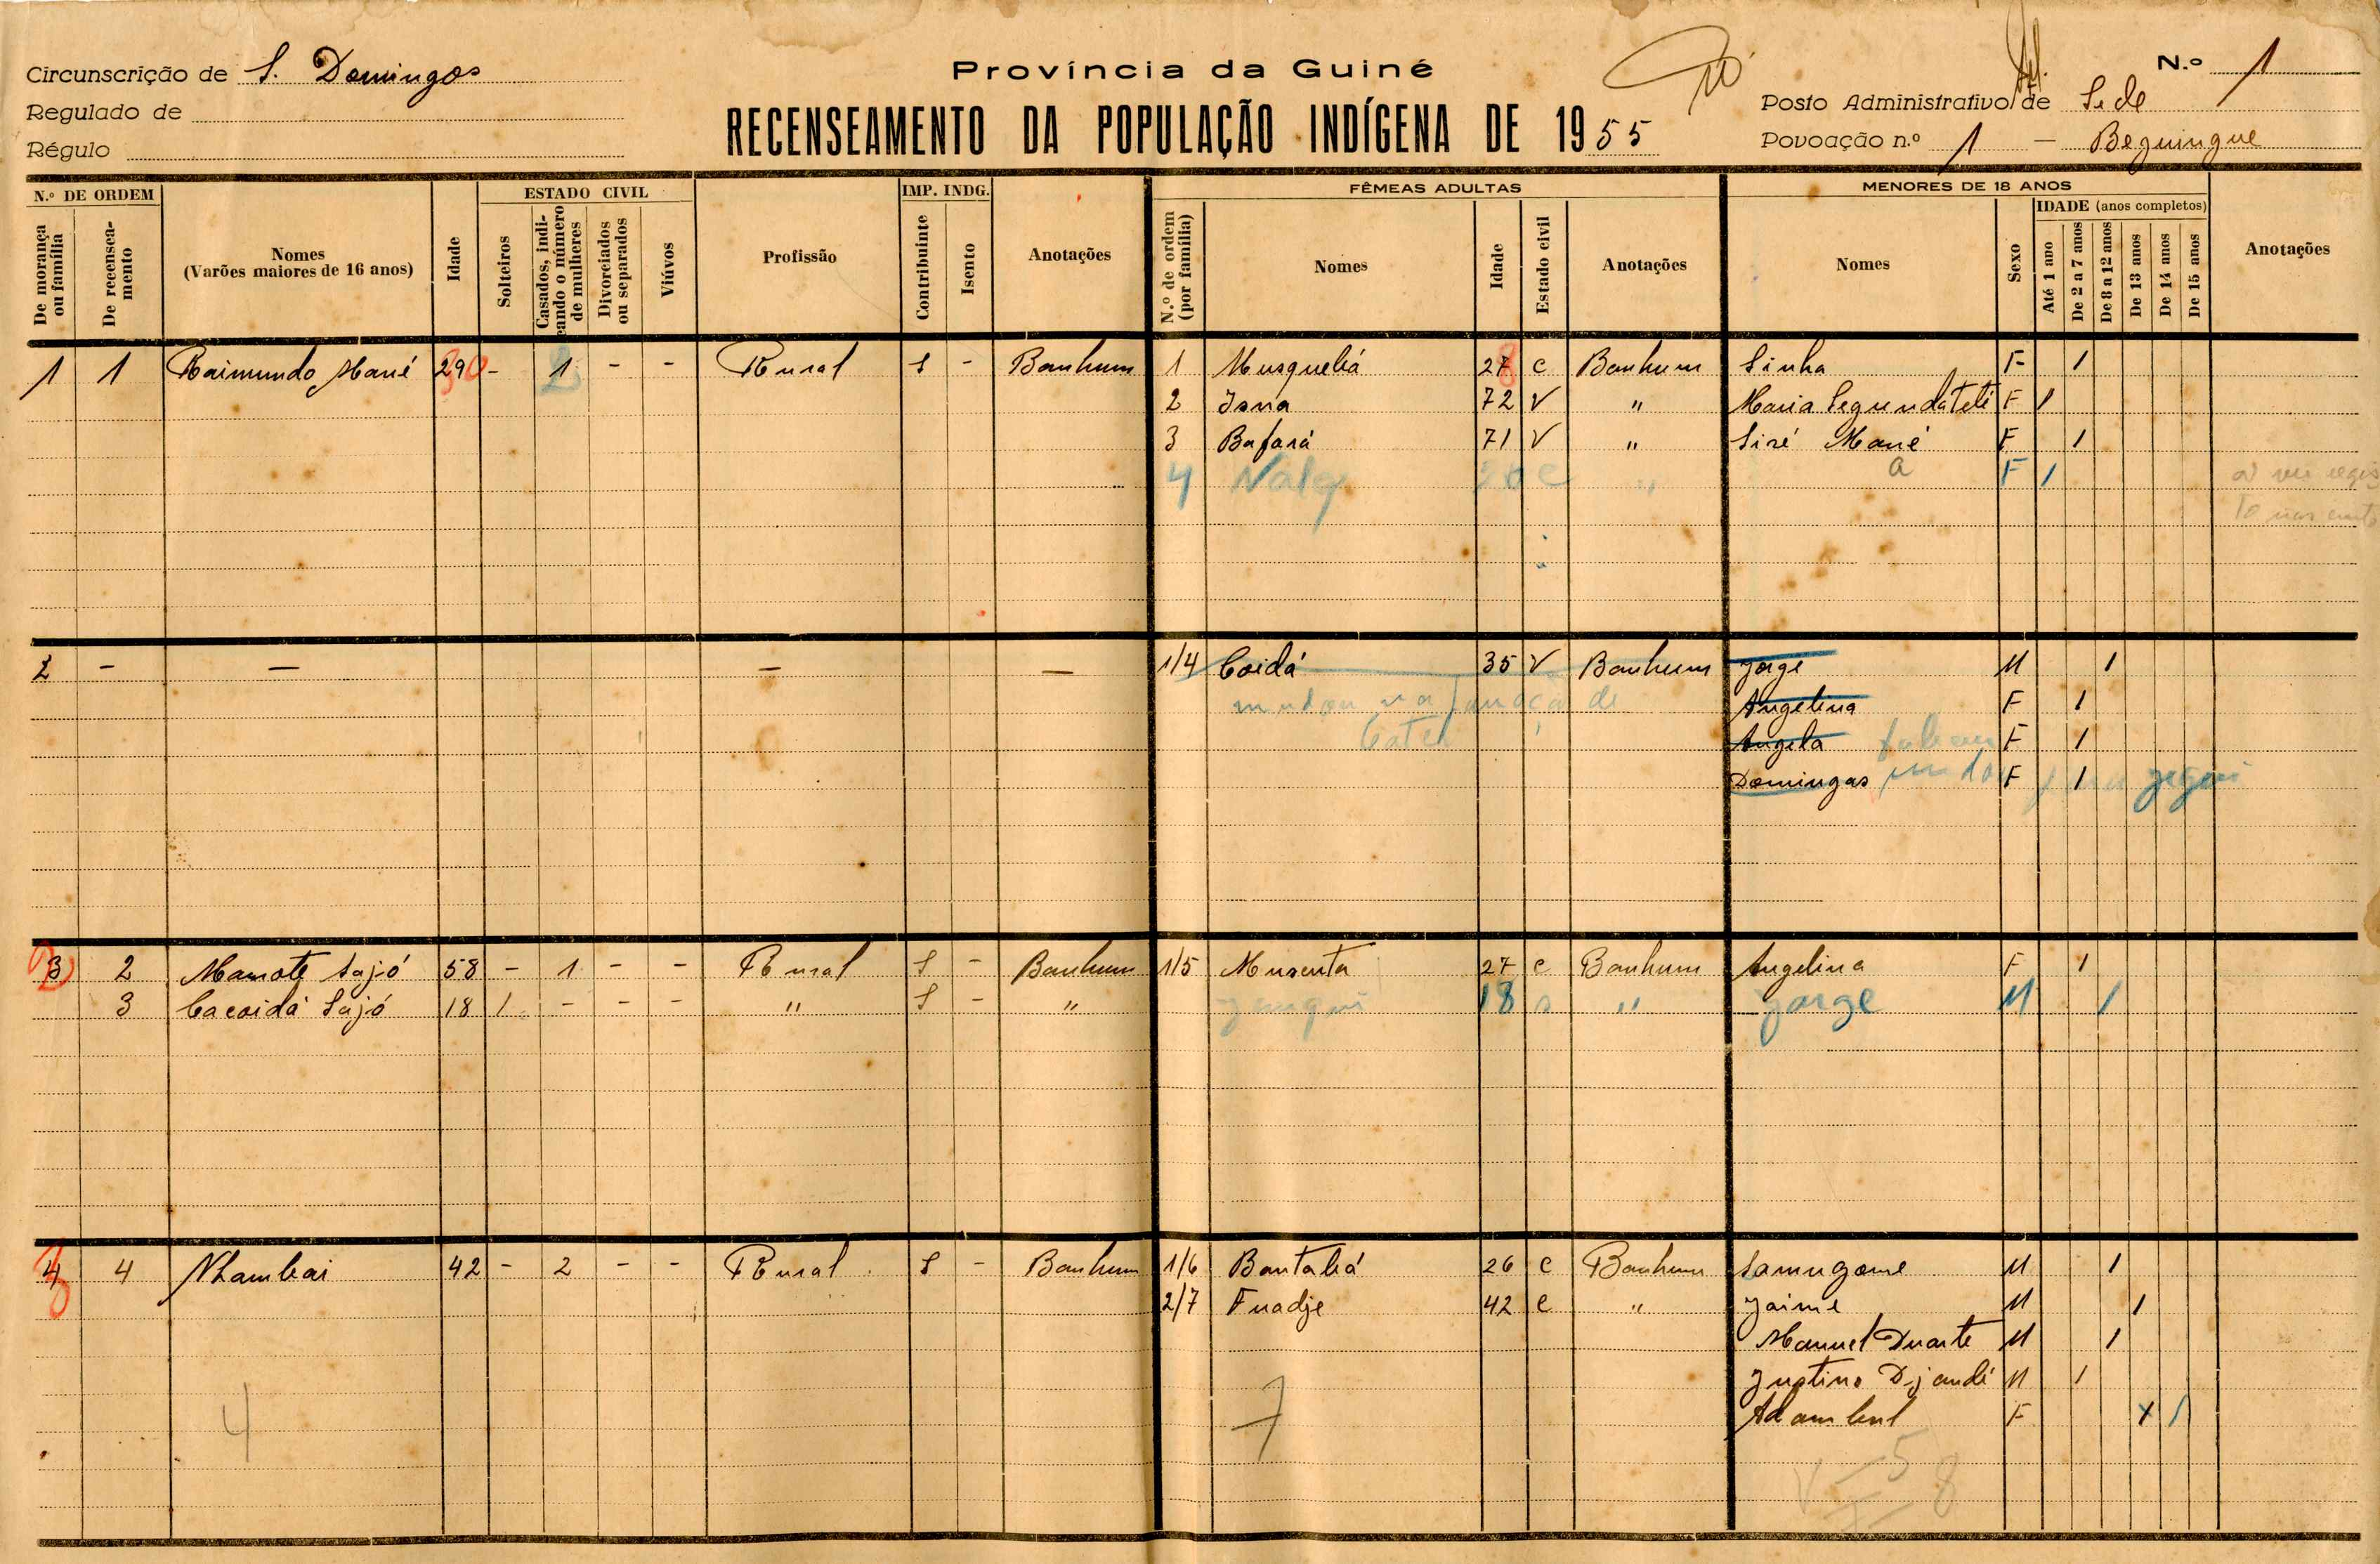 Circunscrição de S. Domingos
Regulado de
Régulo
Província da Guiné
RECENSEAMENTO DA POPULAÇÃO INDÍGENA DE 1955
N.º 1
Posto Administrativo de Sede
Povoação n.º 1 — Beguingue
N.º DE ORDEM
De morança ou família
De recenseamento
Nomes
(Varões maiores de 16 anos)
Idade
ESTADO CIVIL
Solteiros
Casados, indicando o número de mulheres
Divorciados ou separados
Viúvos
Profissão
IMP. INDG.
Contribuinte
Isento
Anotações
FÊMEAS ADULTAS
N.º de ordem (por família)
Nomes
Idade
Estado civil
Anotações
MENORES DE 18 ANOS
Nomes
Sexo
IDADE (anos completos)
Até 1 ano
De 2 a 7 anos
De 8 a 12 anos
De 13 anos
De 14 anos
De 15 anos
Anotações
1 1 Raimundo Mané 29 30 - 1 2 - - Rural S - Banhum 1 Musquebá 27 8 C Banhum Sinha F 1
2 Isna 72 V " Maria Segunda Teté F 1
3 Bafará 71 V " Siré Mané F 1
4 20 C " a F 1
2 - — — — 1/4 Coidá 35 V Banhum Jorge M 1
mudou de Angelina F 1
Angela F 1
Domingas F 1
3 2 Mamote Sajó 58 - 1 - - Rural S - Banhum 1/5 Musenta 27 C Banhum Angelina F 1
3 Cacoidá Sajó 18 1 - - - " S - " 18 s " Jorge M 1
4 4 Nhambai 42 - 2 - - Rural S - Banhum 1/6 Bantabá 26 C Banhum Samugome M 1
2/7 Fuadje 42 C " Jaime M 1
Manuel Duarte M 1
Justino Djandé M 1
Adambul F x 1
4 7
5
8